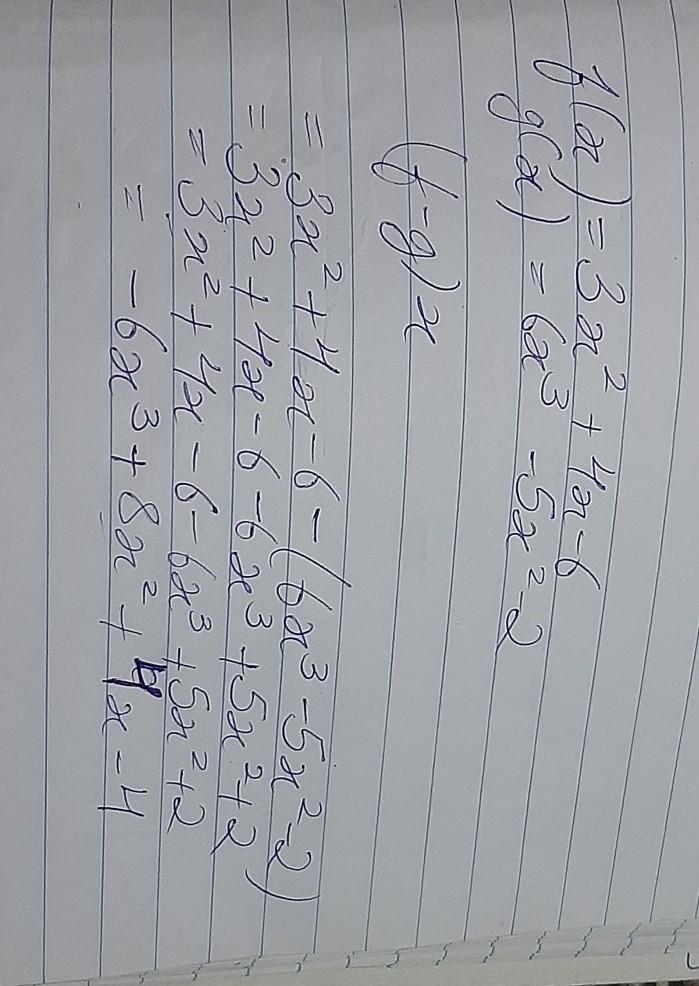 f(x) = 3x² + 4x - 6
g(x) = 6x³ - 5x² - 2
(f - g) x
= 3x² + 4x - 6 - (6x³ - 5x² - 2)
= 3x² + 4x - 6 - 6x³ + 5x² + 2
= 3x² + 4x - 6 - 6x³ + 5x² + 2
= - 6x³ + 8x² + 4x - 4